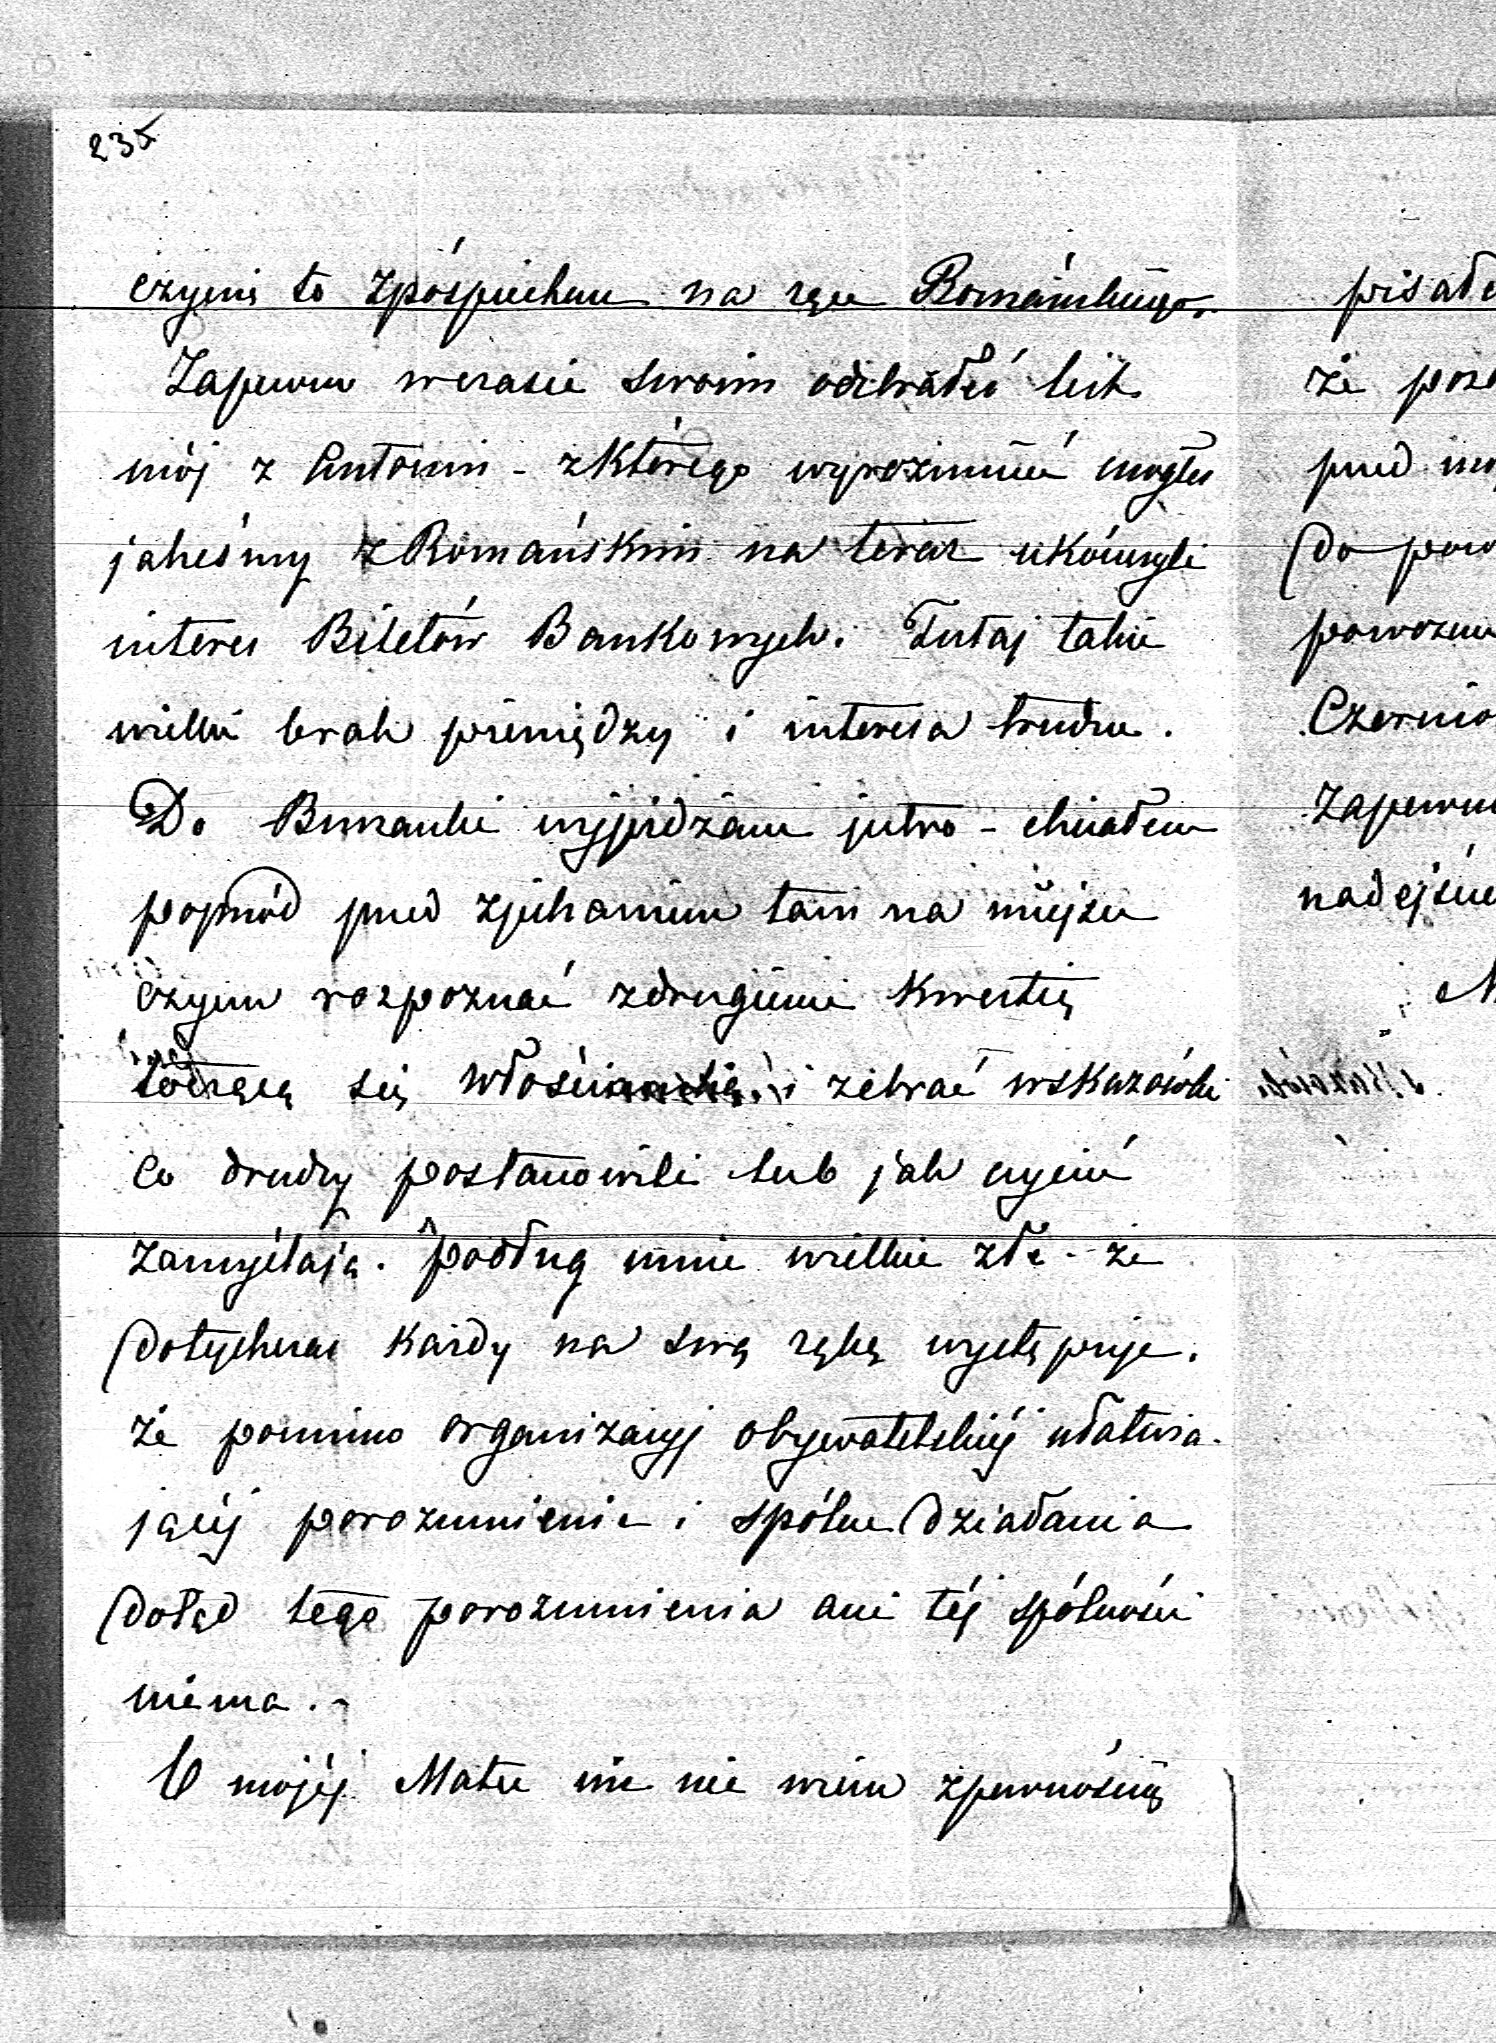 235
czynię to zpóśpiechem na ręce Romańskiego.
Zapewne wczasie swoim odebrałeś list
mój z Antonin - zktórego wyrozumieć mogłeś
jakeśmy z Romańskim na teraz ukończyli
interes Biletów Bankowych. Tutaj takie
wielki brak pieniędzy i interesa trudne.
Do wyjeżdżam jutro - chciałem
poprzód przed zjechaniem tam na miejsce
czyjem rozpoznać zdrugiemi kwestię
toczącą się włościańską i zebrać wskazówki
co drudzy postanowili lub jak czynić
zamyślają. Podług mnie wielkie złe - że
dotychczas każdy na swą rękę występuje.
że pomimo organizacyj obywatelskiéj ułatwia-
jącéj porozumienie i spólne działania
dotąd tego porozumienia ani téj spólności
niema. -
O mojéj Matce nic nie wiem zpewnością
pisałe
że
przed
Do
Czernio
Zapewne
nadejście